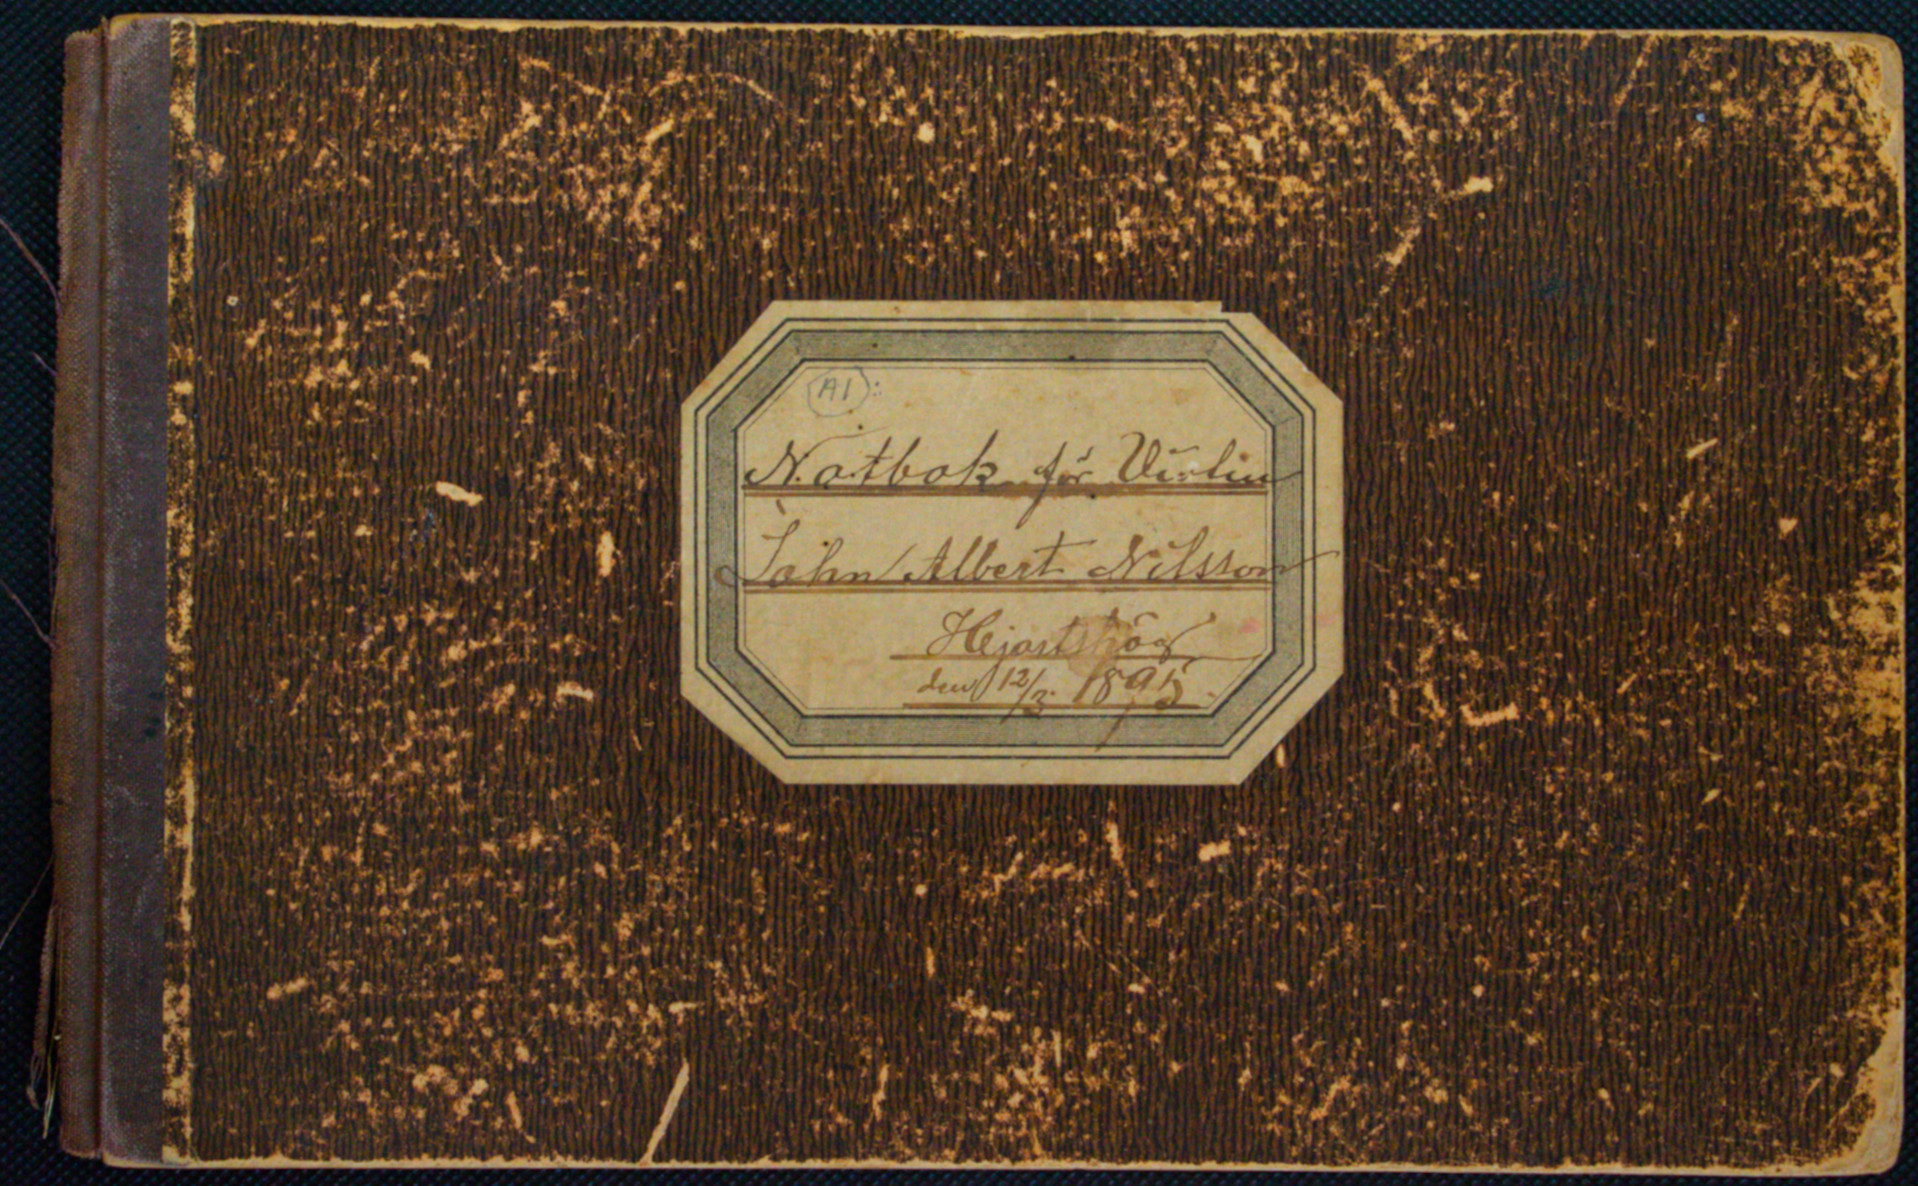 A1:
Notbok för Violin
John Albert Nilsson
Hjertshög
den 12/3 1895.